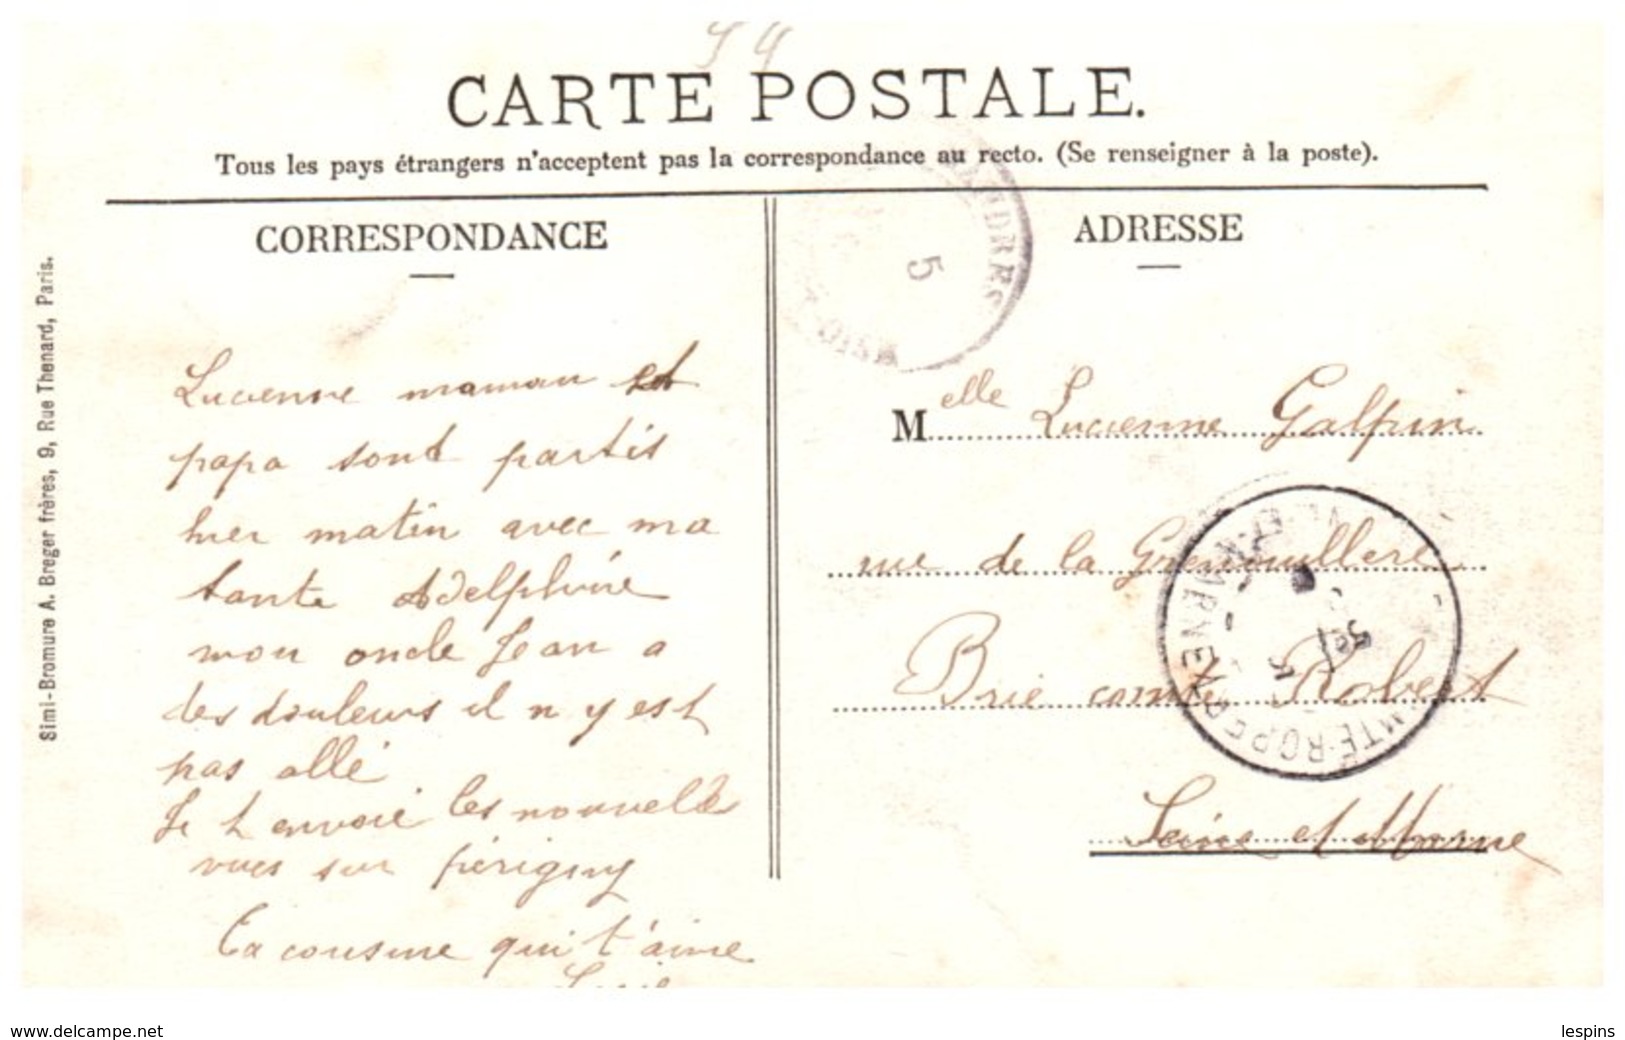 94
CARTE POSTALE.
Tous les pays étrangers n'acceptent pas la correspondance au recto. (Se renseigner à la poste).
CORRESPONDANCE
Lucienne maman et
papa sont partis
hier matin avec ma
tante Adelphine
mon oncle Jean a
des douleurs il n y est
pas allé
Je t envoie les nouvelle
vues sur Périgny
Ta cousine qui t'aime
Lucie
ADRESSE
Melle Lucienne Galpin
rue de la Grenouillere
Brie comte Robert
Seine et Marne
5
OISE
MTE-ROBERT
MARNE
Simi-Bromure A. Breger frères, 9, Rue Thenard, Paris.
www.delcampe.net
lespins